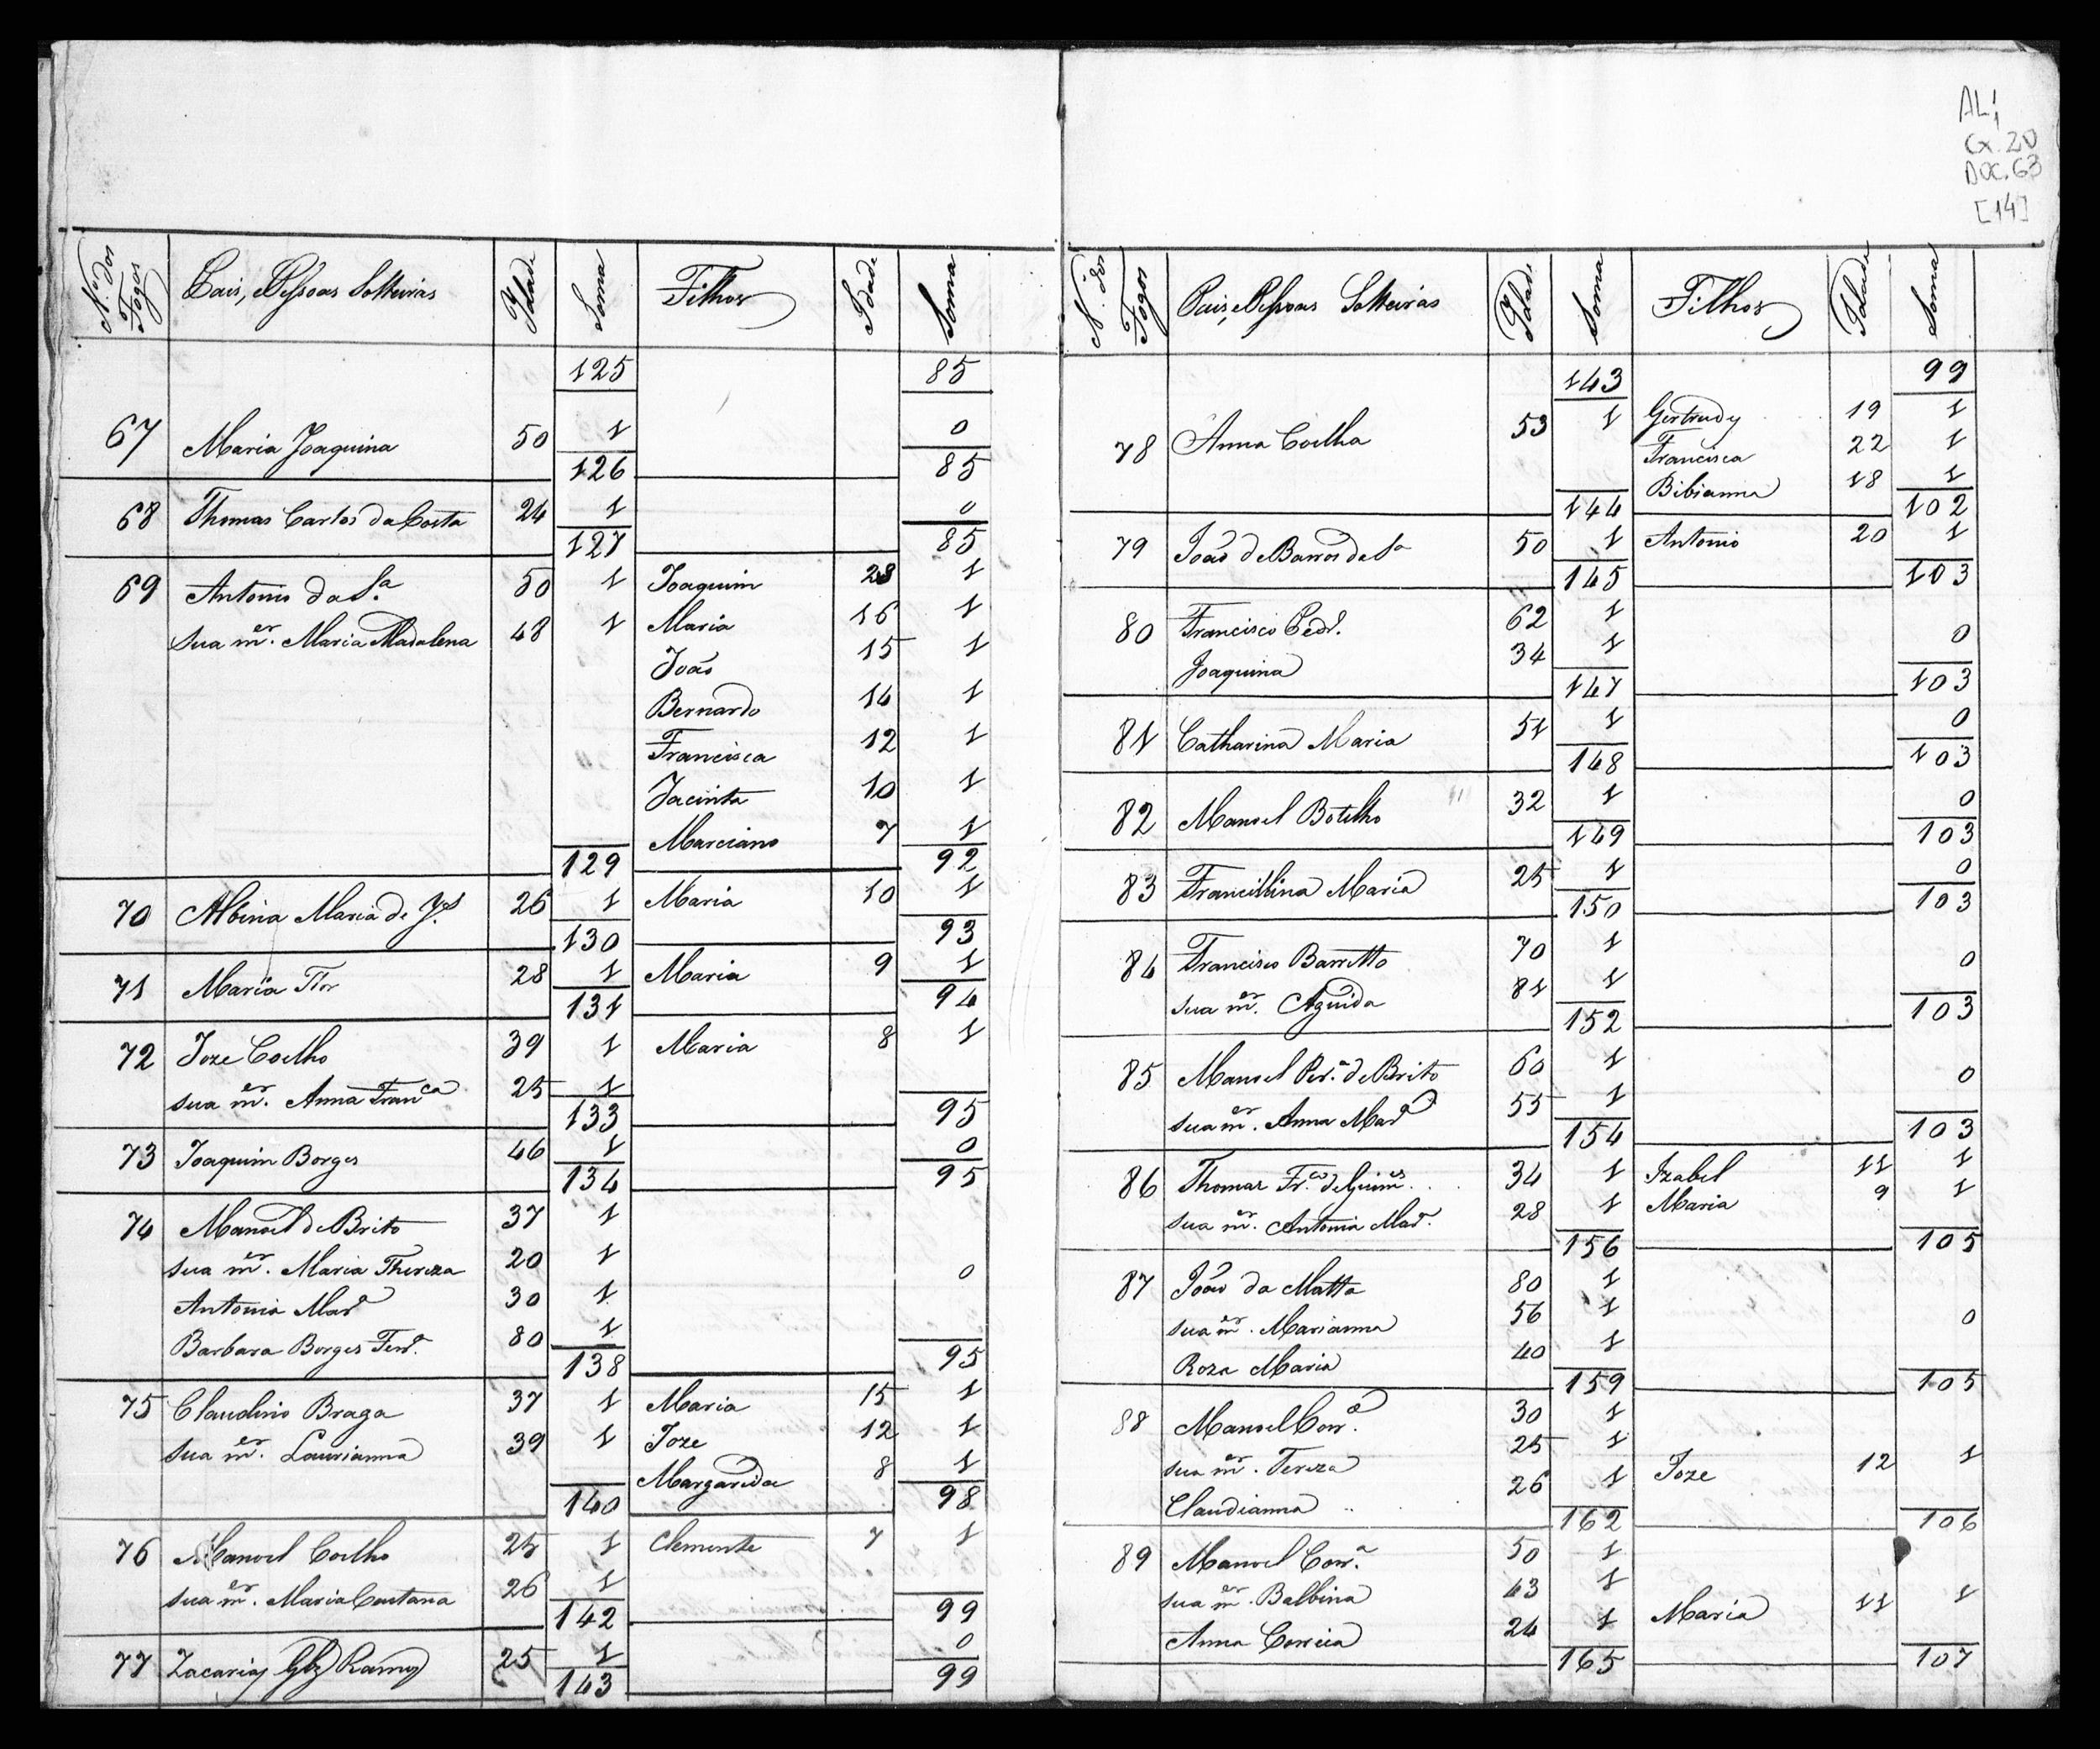 AL1
Cx. 20
DOC. 63
[14]
N.º dos Fogos | Pais, Pessoas Solteiras | Idade | Soma | Filhos | Idade | Soma
125 | 85
67 Maria Joaquina 50 1 | 0
126 | 85
68 Thomas Carlos da Costa 24 1 | 0
127 | 85
69 Antonio da S.ª 50 1 | Joaquim 28 1
sua m.er Maria Madalena 48 1 | Maria 16 1
João 15 1
Bernardo 14 1
Francisca 12 1
Jacinta 10 1
Marciano 7 1
129 | 92
70 Albina Maria de J.s 26 1 | Maria 10 1
130 | 93
71 Maria Flor 28 1 | Maria 9 1
131 | 94
72 Joze Coelho 39 1 | Maria 8 1
sua m.er Anna Fran.ca 25 1
133 | 95
73 Joaquim Borges 46 1 | 0
134 | 95
74 Manoel de Brito 37 1
sua m.er Maria Thereza 20 1 | 0
Antonia Mar.ª 30 1
Barbara Borges 80 1
138 | 95
75 Claudino Braga 37 1 | Maria 15 1
sua m.er Laurianna 39 1 | Joze 12 1
Margarida 8 1
140 | 98
76 Manoel Coelho 25 1 | Clemente 7 1
sua m.er Maria Caetana 26 1
142 | 99
77 Zacarias Glz Ramos 25 1 | 0
143 | 99
N.º dos Fogos | Pais, Pessoas Solteiras | Idade | Soma | Filhos | Idade | Soma
143 | 99
78 Anna Coelha 53 1 | Gertrudes 19 1
Francisca 22 1
Bibianna 18 1
144 | 102
79 João de Barros da S.ª 50 1 | Antonio 20 1
145 | 103
80 Francisco 62 1
Joaquina 34 1 | 0
147 | 103
81 Catharina Maria 51 1 | 0
148 | 103
82 Manoel Botelho 32 1 | 0
149 | 103
83 Francilhina Maria 25 1 | 0
150 | 103
84 Francisco Barretto 70 1 | 0
sua m.er Aguida 81 1
152 | 103
85 Manoel Per.ª de Brito 60 1 | 0
sua m.er Anna Mar.ª 55 1
154 | 103
86 Thomaz Fr.co de Guim.es 34 1 | Izabel 11 1
sua m.er Antonia Mar.ª 28 1 | Maria 9 1
156 | 105
87 João da Matta 80 1
sua m.er Marianna 56 1 | 0
Roza Maria 40 1
159 | 105
88 Manoel Corr.ª 30 1
sua m.er Tereza 25 1
Claudianna 26 1 | Joze 12 1
162 | 106
89 Manoel Corr.ª 50 1
sua m.er Balbina 43 1
Anna Correia 24 1 | Maria 11 1
165 | 107